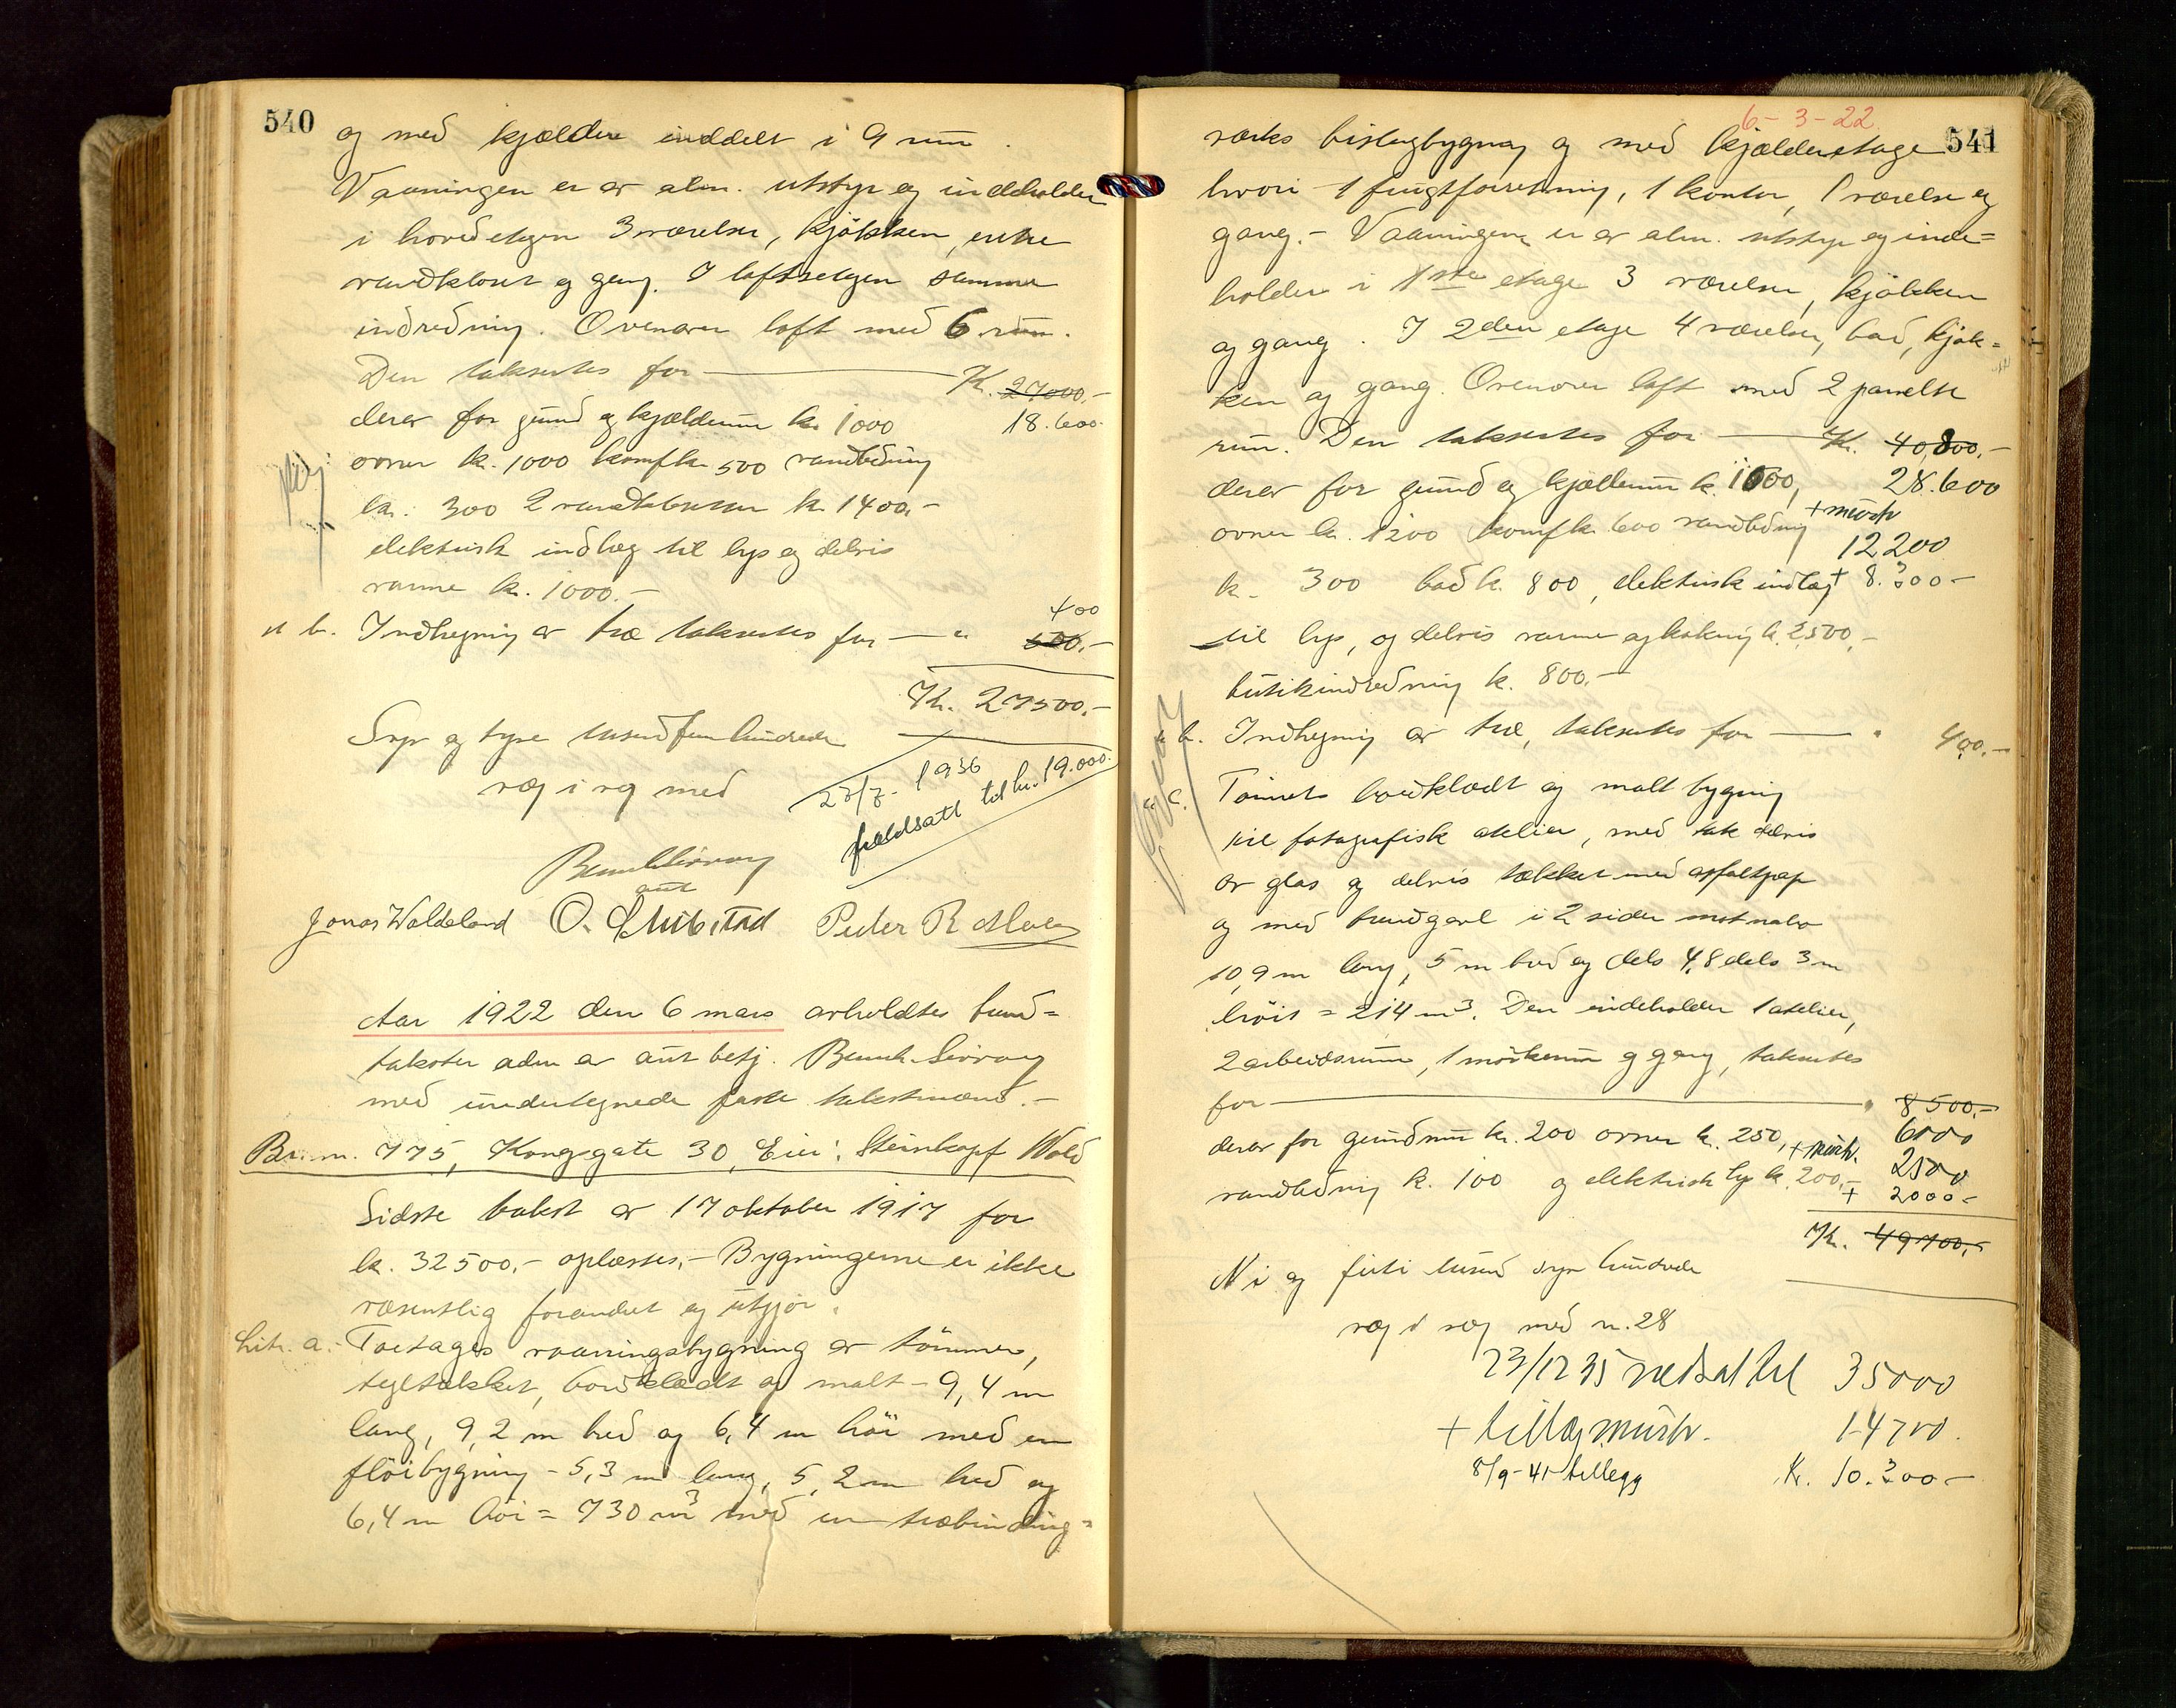 540
og med kjælder inddelt i 9 rum.
Vaaningen er av alm. utstyr og indeholder
i hovedetagen 3 værelser, kjøkken, entre
vandkloset og gang. I loftsetagen samme
indredning. Ovenover loft med 6 rum.
Den takseres for — Kr. 27000.-
derav for grund og kjælderum kr. 1000
18.600
ovner kr. 1000 komf kr. 500 vandledning
kr. 300 2 vandklosetter kr. 1400.-
elektrisk indlæg til lys og delvis
varme kr. 1000.-
400
" b. Indhegning av træ takseres for — " 500.-
Kr. 27500.-
Syv og tyve tusend fem hundrede
væg i væg med
23/7- 1936
nedsatt til kr. 19.000.
Jonas Waldeland O. Stubstad Peter R
Aar 1922 den 6 mars avholdtes brand=
takster adm av aut betj. Bernh. Sivrang
med undertegnede faste takstmænd.-
Br. nr. 775, Kongsgate 30, Eier: Steinkopf Wold
Sidste takst av 17 oktober 1917 for
kr. 32500.- oplæstes.- Bygningerne er ikke
væsentlig forandret og utgjør:
Litr. a. Toetages vaaningsbygning av tømmer,
tegltækket, bordklædt og malt - 9,4 m
lang, 9,2 m bred og 6,4 m høi med en
fløibygning - 5,3 m lang, 5,2 m bred og
6,4 m høi = 730 m³ med en træbinding=
6-3-22
541
verks bislagbygning og med kjælderetage
hvori 1 frugtforretning, 1 kontor, 1 værelse og
gang.- Vaaningen er av alm. utstyr og inde=
holder i 1ste etage 3 værelser, kjøkken
og gang. I 2den etage 4 værelser, bad, kjøk=
ken og gang. Ovenover loft med 2 panelte
rum. Den takseres for — Kr. 40,800.-
derav for grund og kjælderum kr. 1600,
28.600
ovner kr. 1200 komf kr. 600 vandledning
12200
kr. 300 bad kr. 800, elektrisk indlæg
+ 8.300-
til lys, og delvis varme og kokning kr. 2500.-
butikindredning kr. 800.-
" b. Indhegning av træ, takseres for — " 400.-
" c. Tømret bordklædt og malt bygning
til fotografisk atelier, med tak delvis
av glas og delvis tækket med asfaltpap
og med brandgavl i 2 sider mot nabo
10,9 m lang, 5 m bred og dels 4,8 dels 3 m
høit = 214 m³. Den indeholder 1 atelier,
2 arbeidsrum, 1 mørkerum og gang, takseres
for — " 8500.-
derav for grundmur kr. 200 ovner kr. 250,
6000
vandledning kr. 100 og elektrisk lys kr. 200.-
2500
+ 2000-
Kr. 49700.-
Ni og firti tusend syv hundrede
væg i væg med nr. 28
23/12 35 nedsat til 35000
+ tillæg 14700.
8/9-41 tillegg Kr. 10.300-